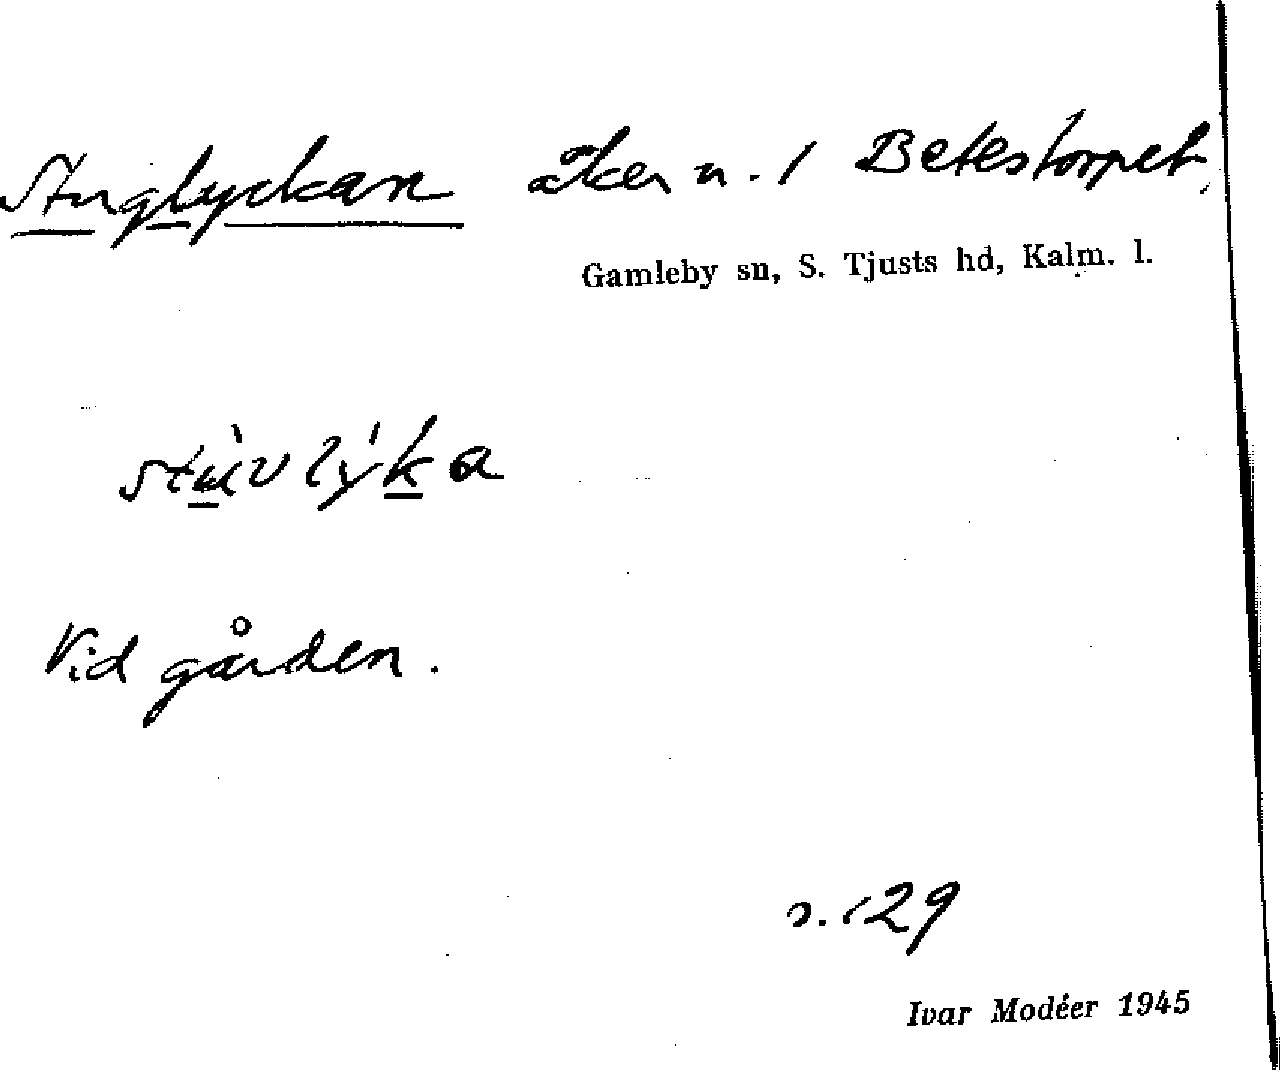 Stuglyckan åker n. 1 Betestorpet,
Gamleby sn, S. Tjusts hd, Kalm. l.
Vid gården.
s. 129
Ivar Modéer 1945